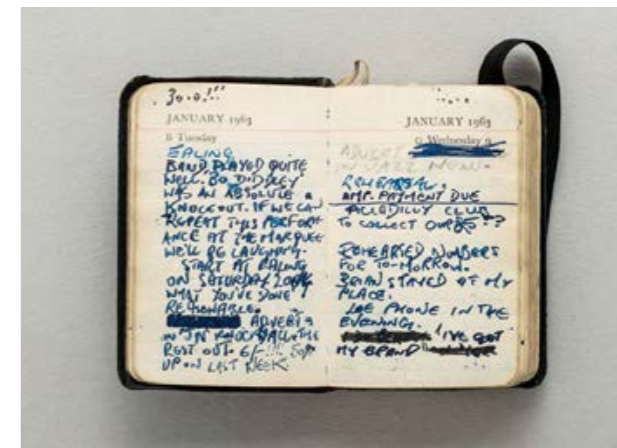 30.0!"
JANUARY 1963
8 Tuesday
EALING
BAND PLAYED QUITE
WELL. BO DIDDLEY
WAS AN ABSOLUTE
KNOCKOUT. IF WE CAN
REPEAT THIS PERFORM
ANCE AT THE MARQUEE
WE'LL BE LAUGHING.
START AT EALING
ON SATURDAY
WHAT YOU'VE DONE
ADVERTS
IN JN
REST OUT. 6/-
UP ON LAST WEEK
JANUARY 1963
9 Wednesday 9
ADVERT
IN JAZZ NEWS.
REHEARSAL.
AMP. PAYMENT DUE
CLUB
TO COLLECT
REHEARSED NUMBERS
FOR TO-MORROW.
BRIAN STAYED AT MY
PLACE.
PHONE IN THE
EVENING.
I'VE GOT
MY BRAND